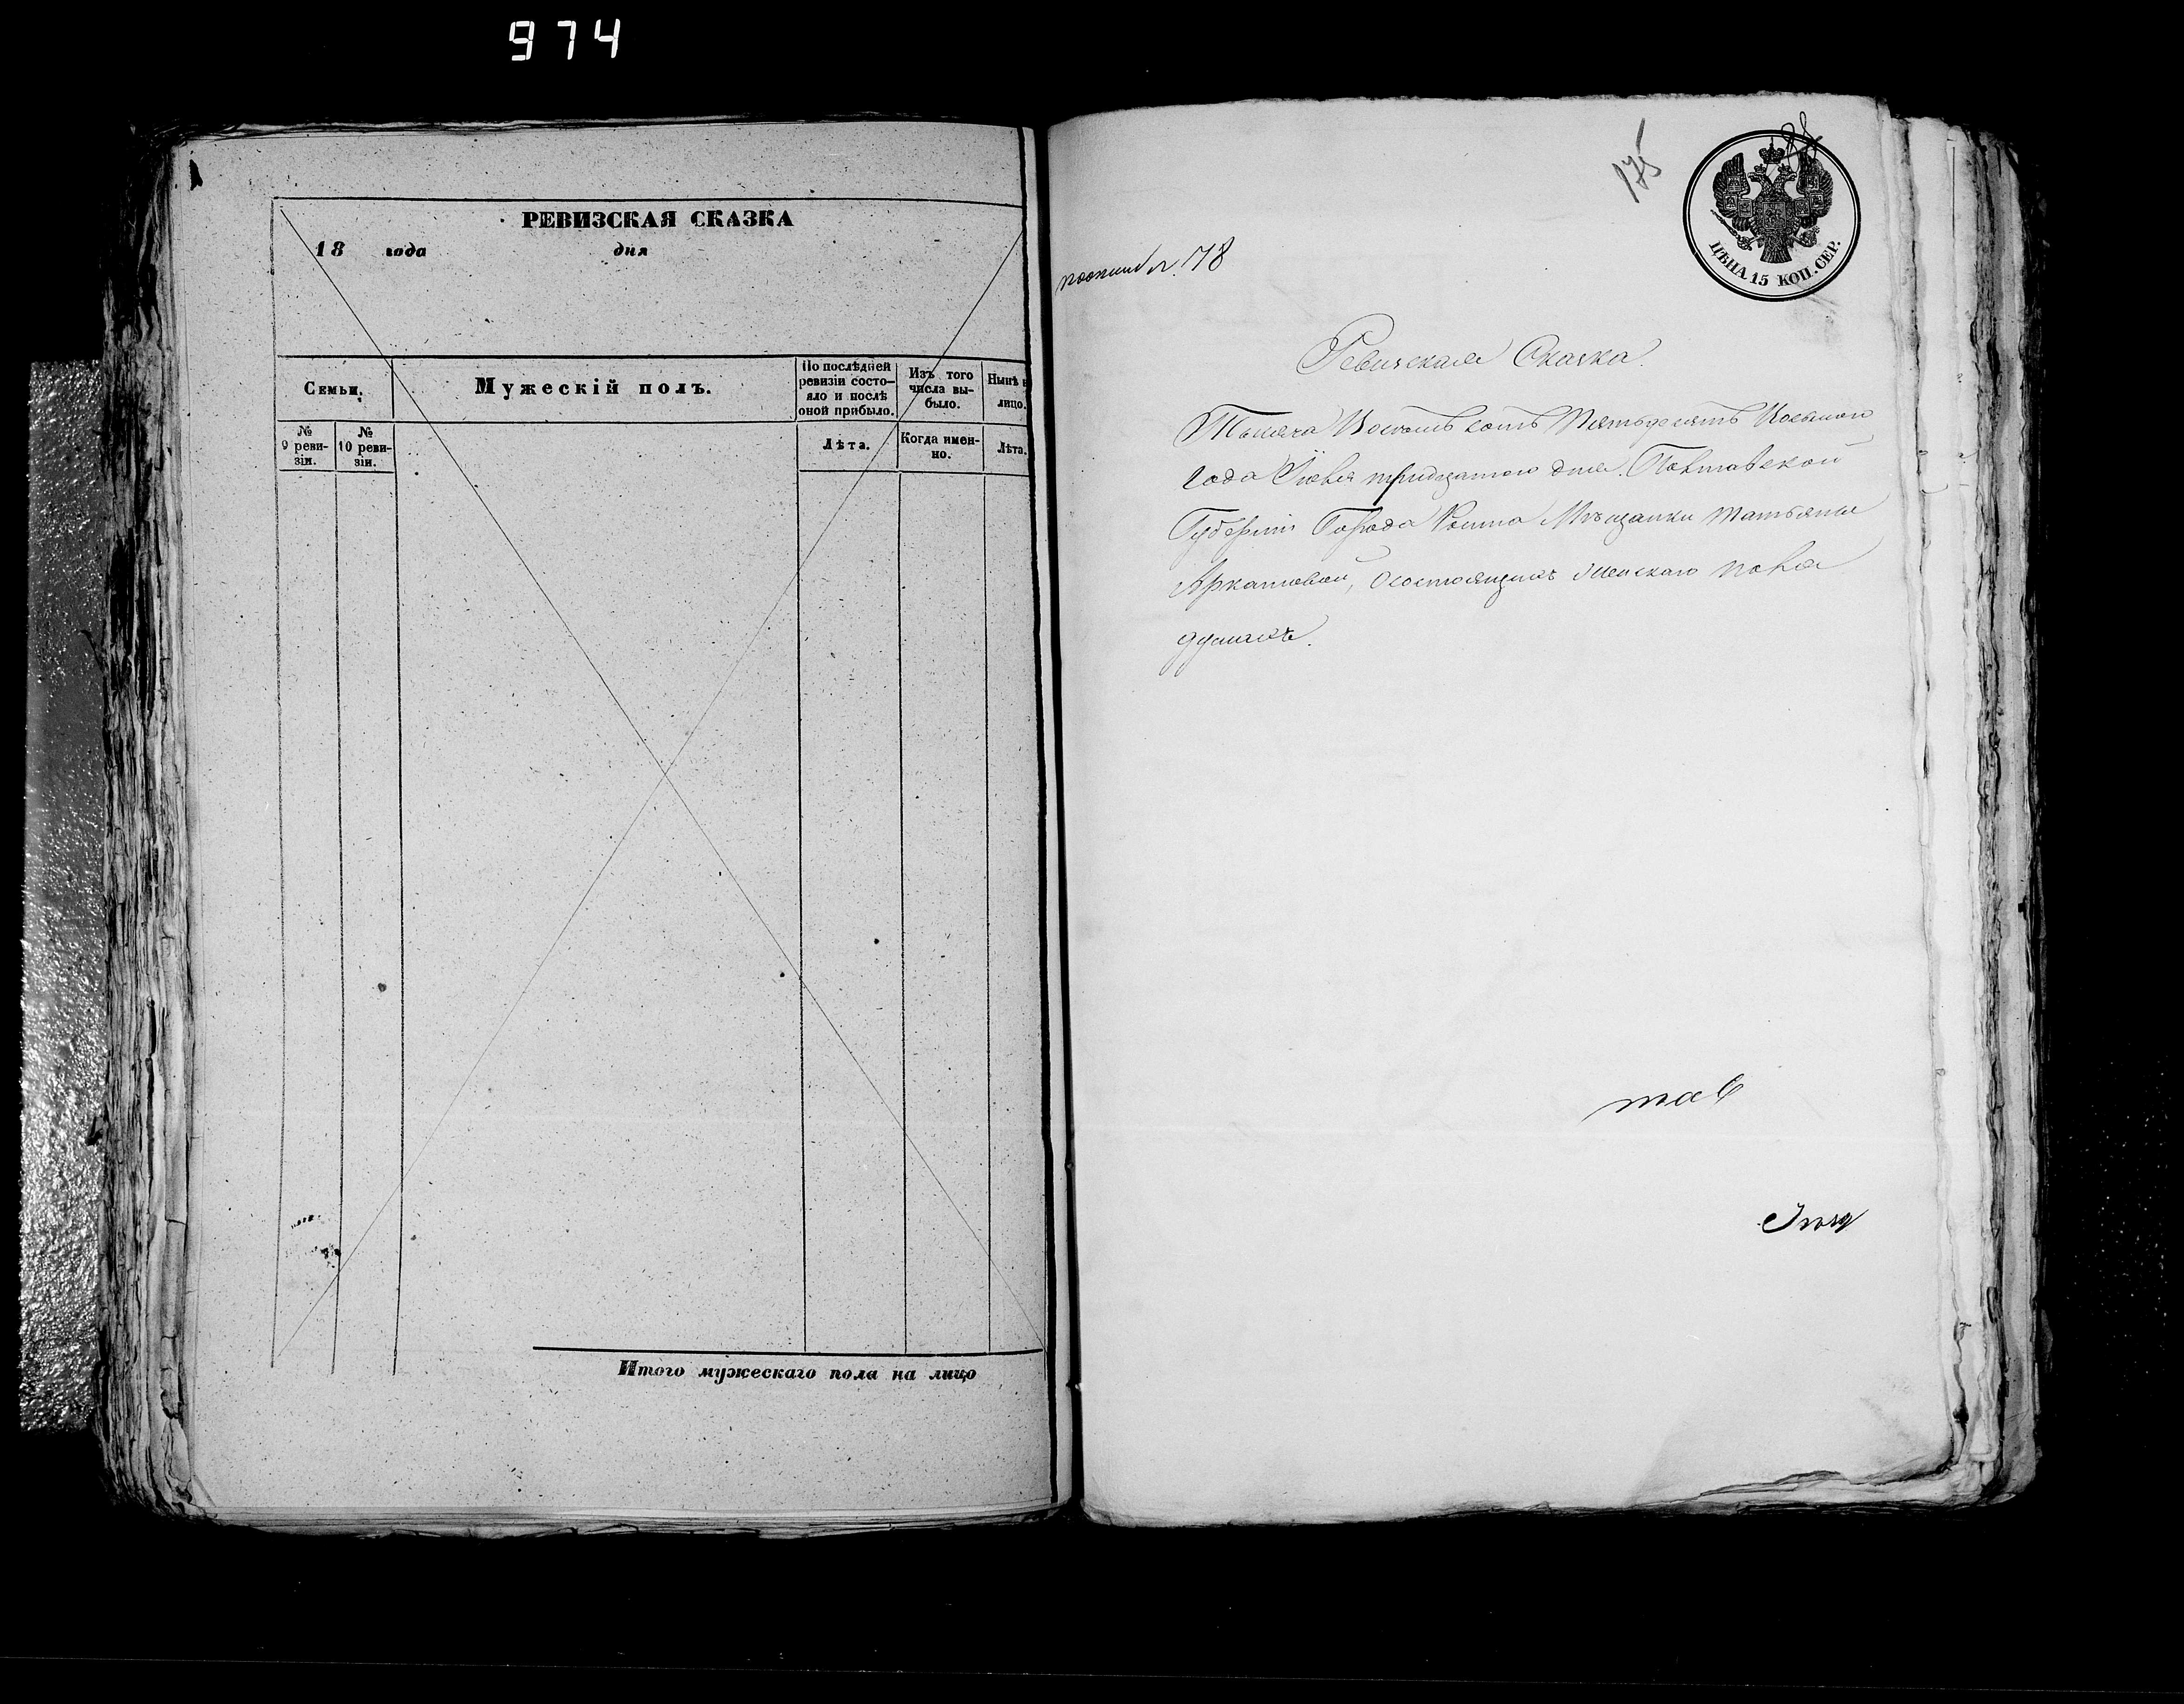 974
РЕВИЗСКАЯ СКАЗКА
18 года дня
Семьи.
Мужескій полъ.
По послѣдней ревизіи состо-
яло и послѣ оной прибыло.
Изъ того числа вы-
было.
Нынѣ
лицо.
№ 9 реви-
зіи.
№ 10 реви-
зіи.
Лѣта.
Когда имен-
но.
Лѣта.
Итого мужескаго пола на лицо
175
ЦѢНА 15 КОП. СЕР.
178
Ревизская Сказка
Тысяча Восемь сотъ Пятьдесятъ Восьмого
Года Июня тридцатого дня Полтавской
Губерніи Города Ромна Мѣщанки Татьяны
Аркатовой, О состоящихъ женскаго пола
душахъ.